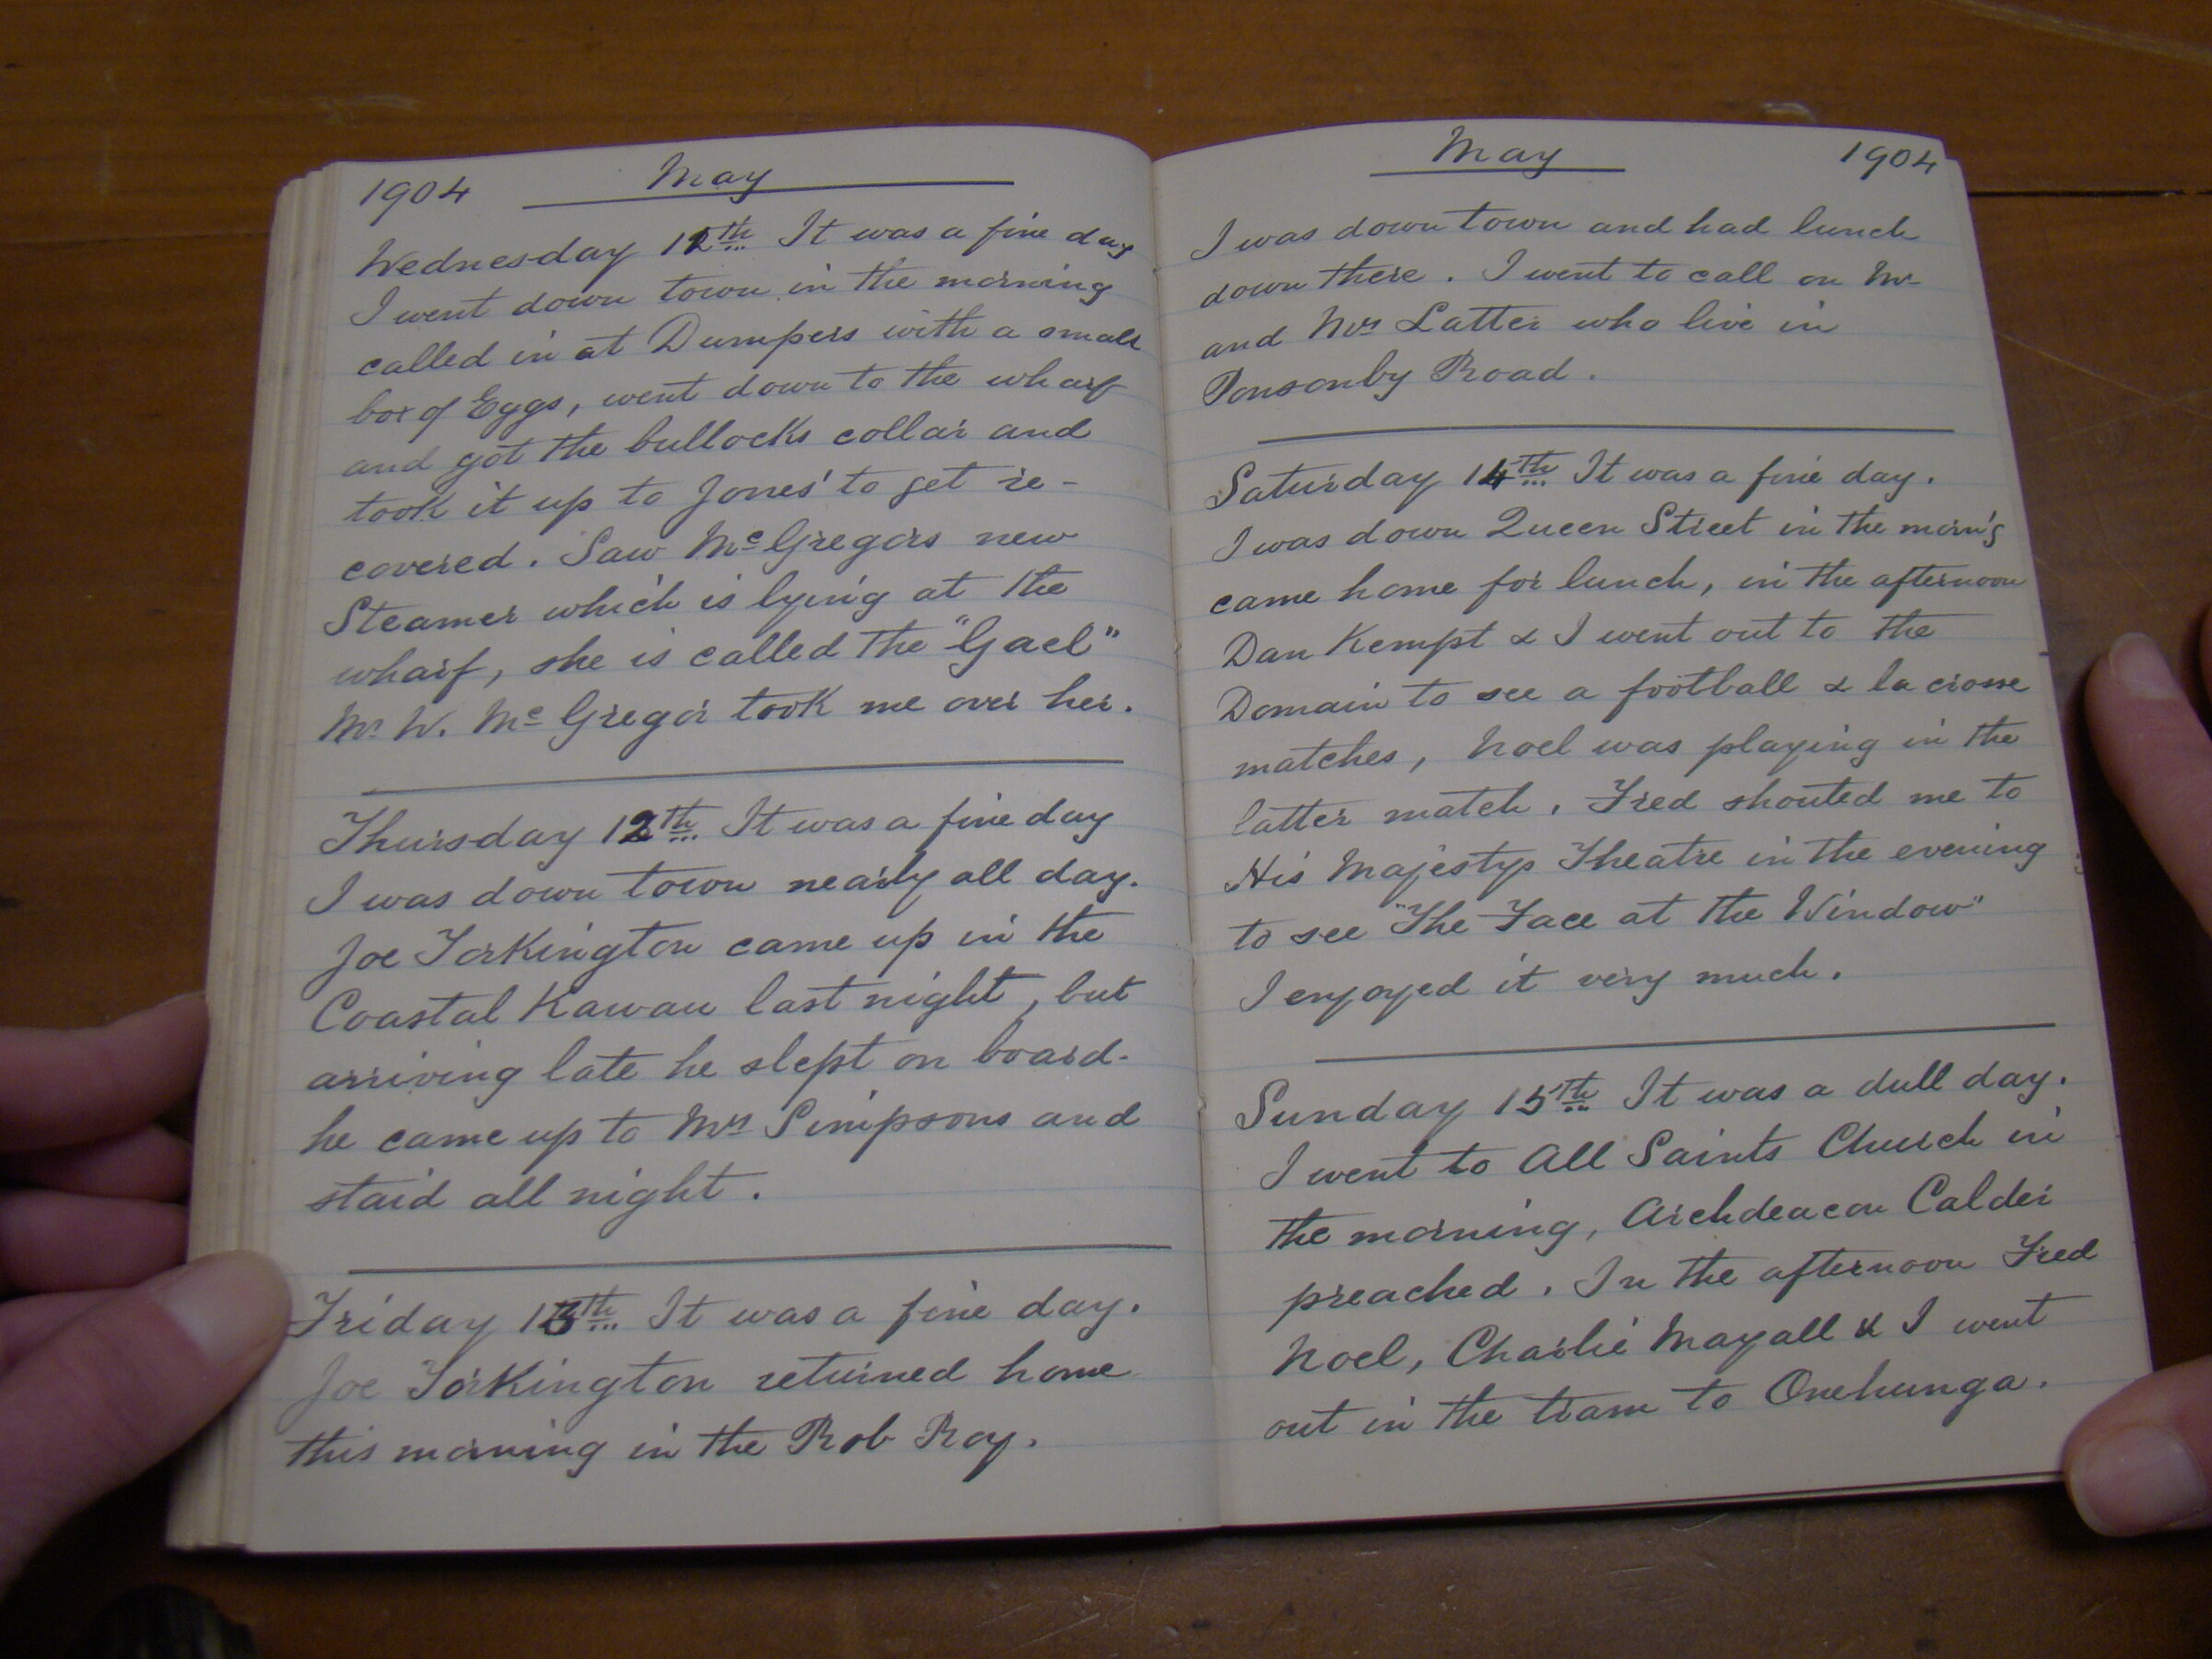 1904 May
Wednesday 11th It was a fine day
I went down town in the morning
called in at Dumpers with a small
box of Eggs, went down to the wharf
and got the bullocks collar and
took it up to Jones' to get re-
covered. Saw McGregors new
Steamer which is lying at the
wharf, she is called the "Gael"
Mr W. McGregor took me over her.
Thursday 12th It was a fine day
I was down town nearly all day.
Joe Torkington came up in the
Coastal Kawau last night, but
arriving late he slept on board-
he came up to Mrs Simpsons and
staid all night.
Friday 13th It was a fine day.
Joe Torkington returned home
this morning in the Rob Roy.
May 1904
I was down town and had lunch
down there. I went to call on Mr
and Mrs Latter who live in
Ponsonby Road.
Saturday 14th It was a fine day.
I was down Queen Street in the morn'g
came home for lunch, in the afternoon
Dan Kempt & I went out to the
Domain to see a football & la crosse
matches, Noel was playing in the
latter match. Fred shouted me to
His Majestys Theatre in the evening
to see "The Face at the Window"
I enjoyed it very much.
Sunday 15th It was a dull day.
I went to All Saints Church in
the morning, Archdeacon Calder
preached. In the afternoon Fred
Noel, Charlie Mayall & I went
out in the tram to Onehunga.